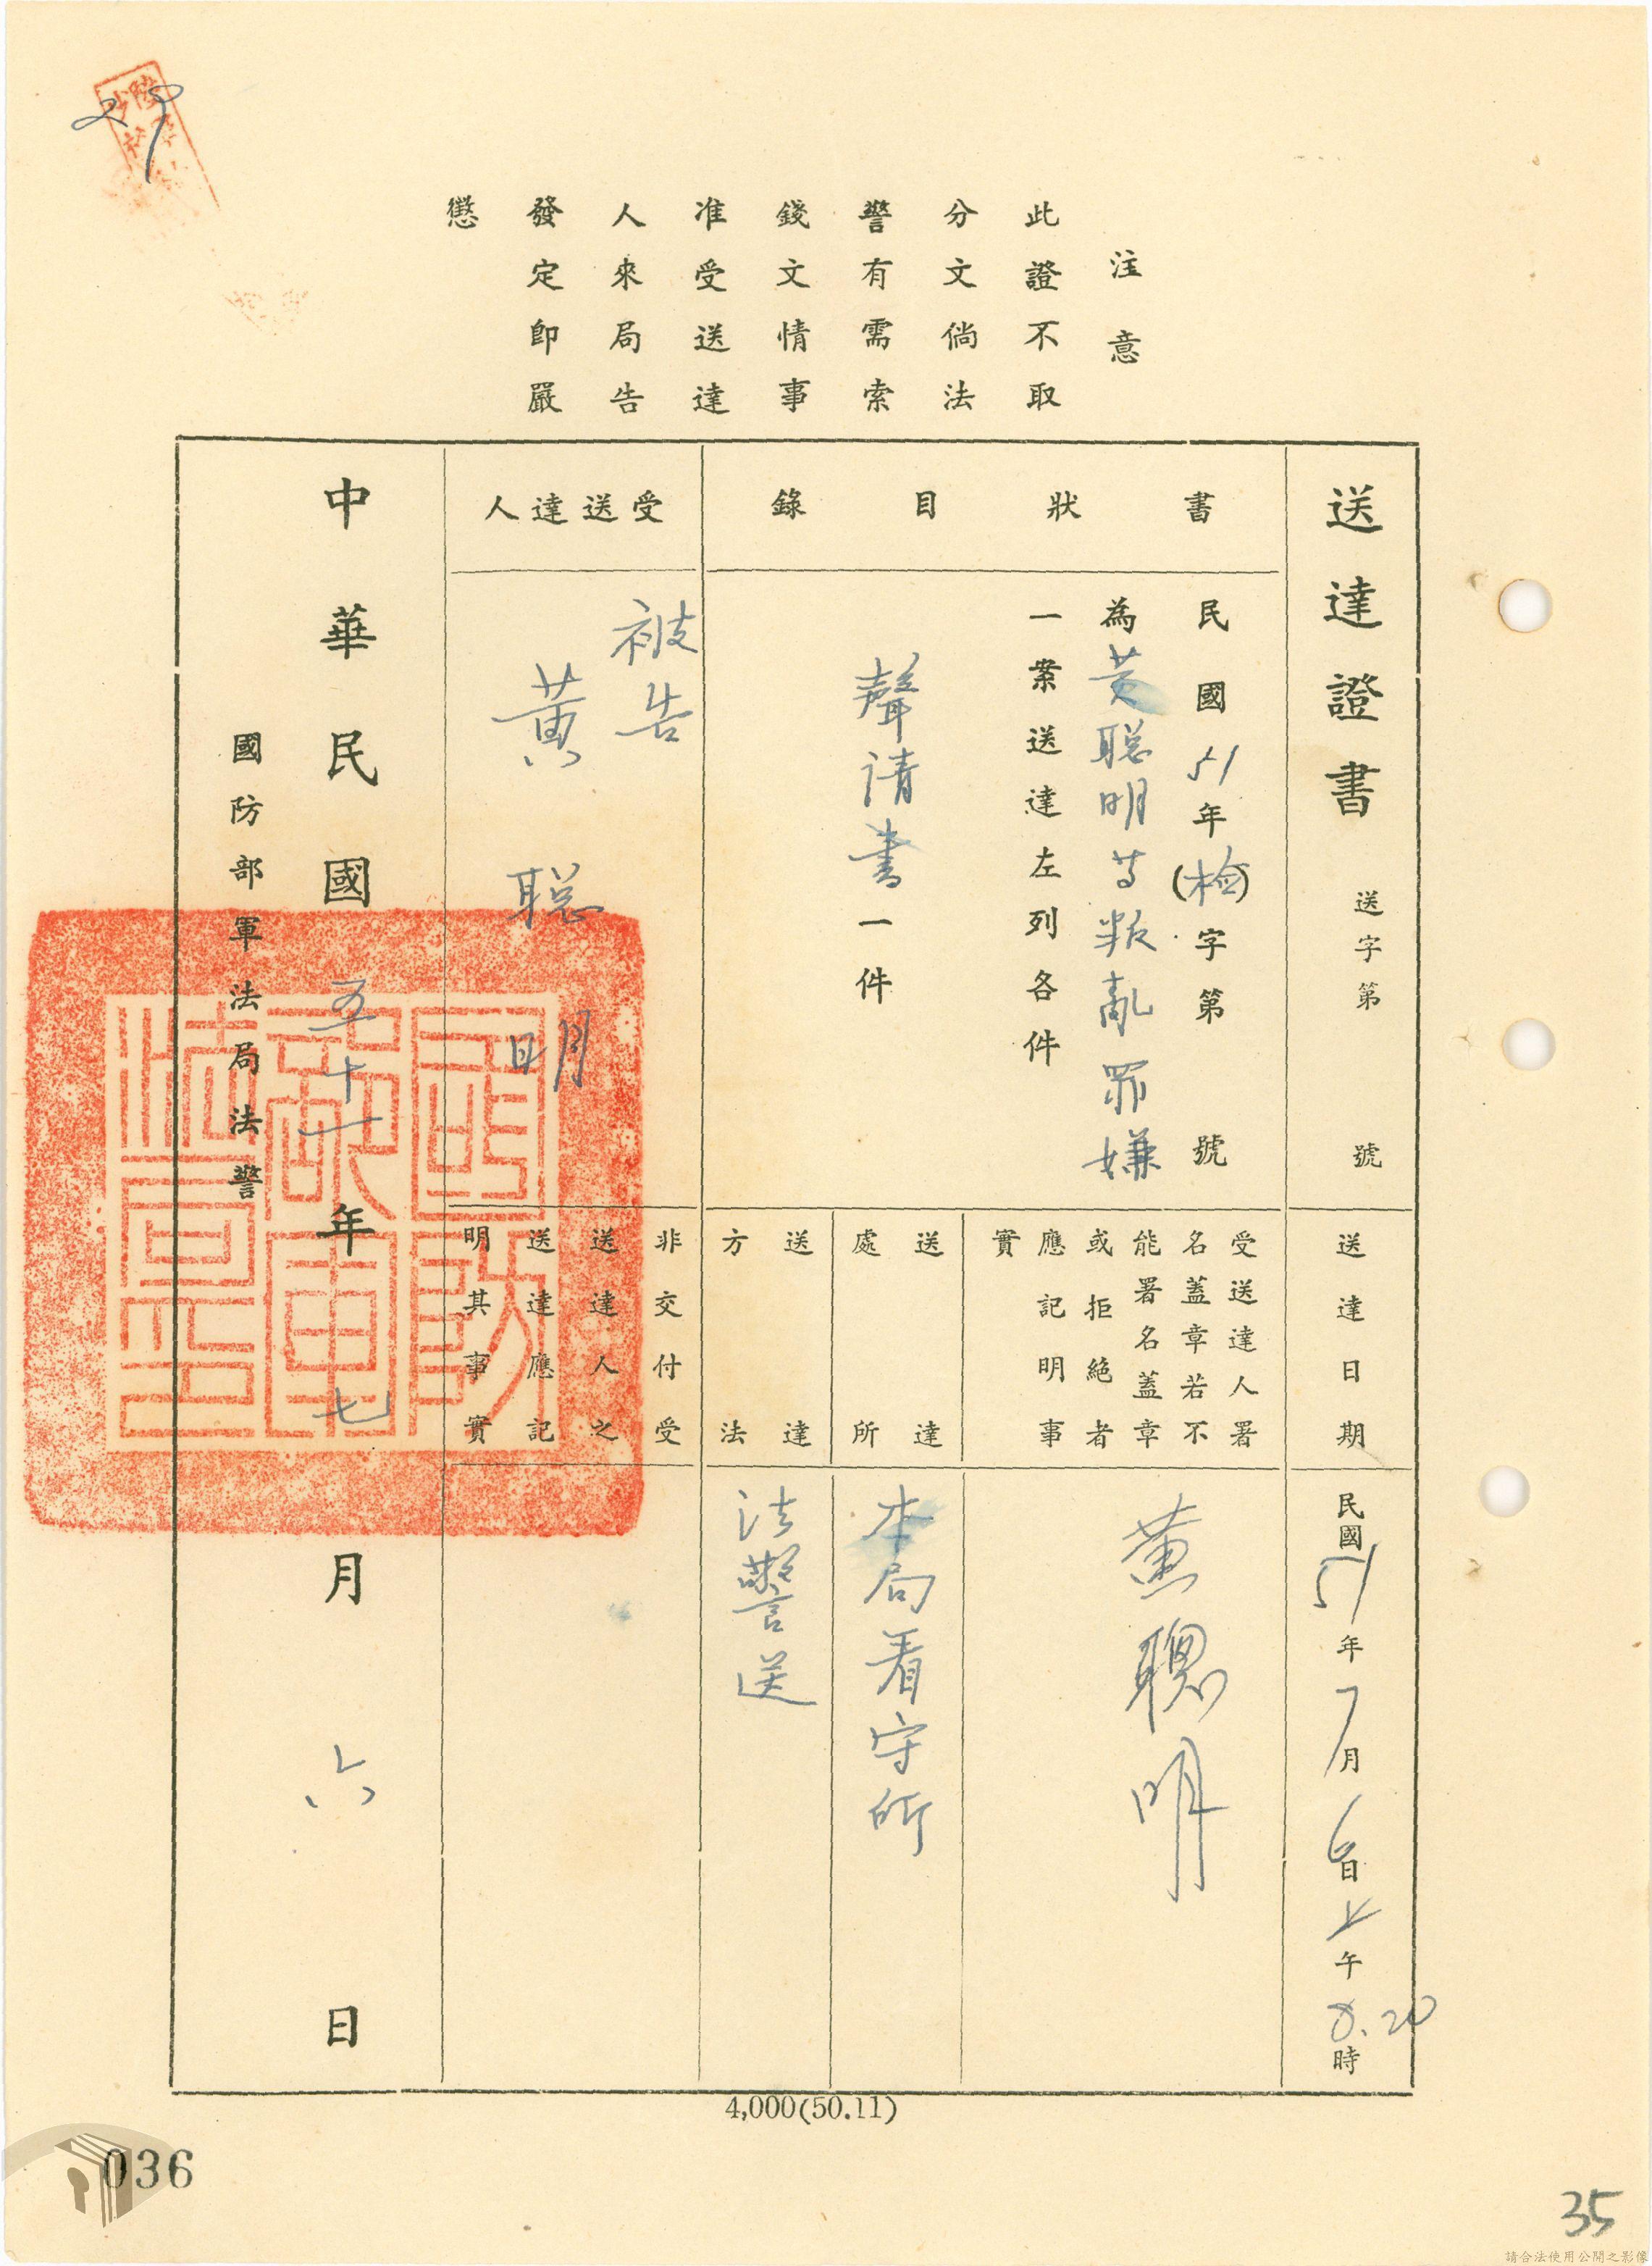 29
注意
此證不取
分文倘法
警有需索
錢文情事
准受送達
人來局告
發定即嚴
懲
送達證書 送字第 號
書狀目錄
民國51年(檢)字第 號
為黃聰明等叛亂罪嫌
一案送達左列各件
聲請書一件
受送達人
被告
黃聰明
送達日期
民國51年7月6日上午8.20時
受送達人署
名蓋章若不
能署名蓋章
或拒絕者
應記明事
實
黃聰明
送達
處所
本局看守所
送達
方法
法警送
非交付受
送達人之
送達應記
明其事實
中華民國五十一年七月六日
國防部軍法局法警
4,000(50.11)
036
35
請合法使用公開之影像